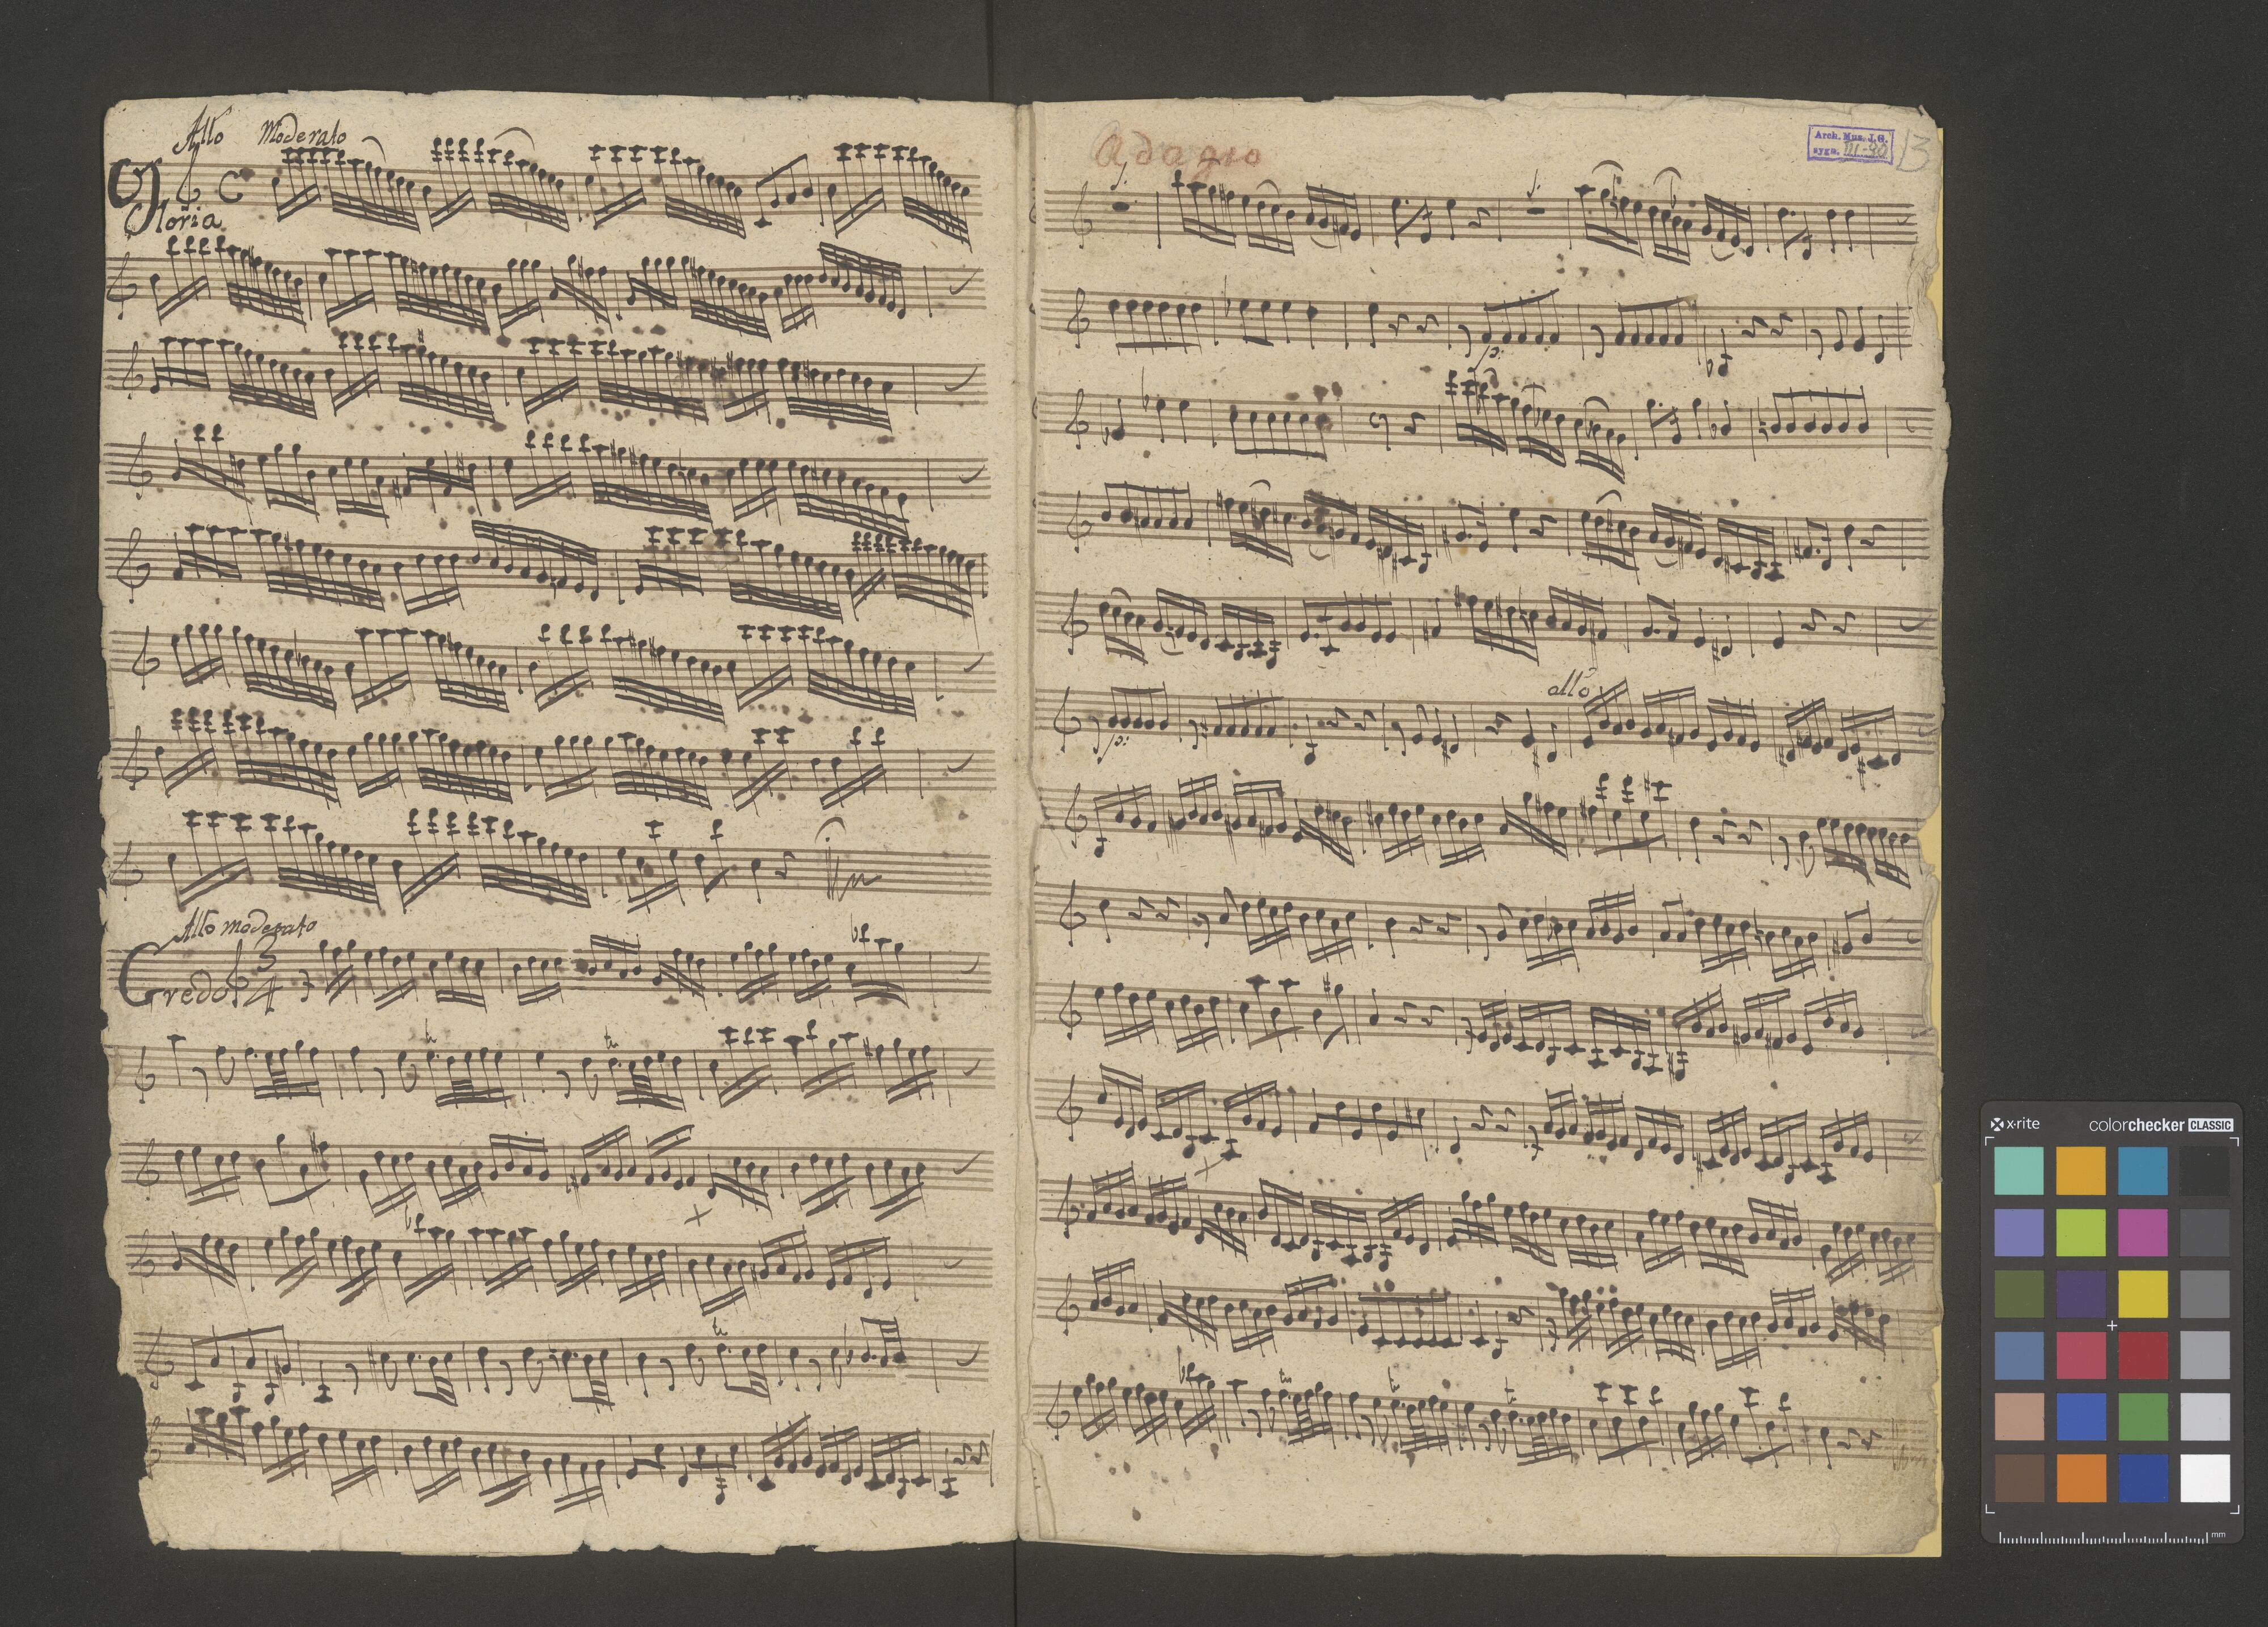 Allo Moderato
Gloria
Allo moderato
Credo 3/4
tr
tr
tr
Adagio
Arch. Mus. J.G.
sygn. III-90
13
p:
allo
p:
tr
tr
x-rite
colorchecker CLASSIC
mm